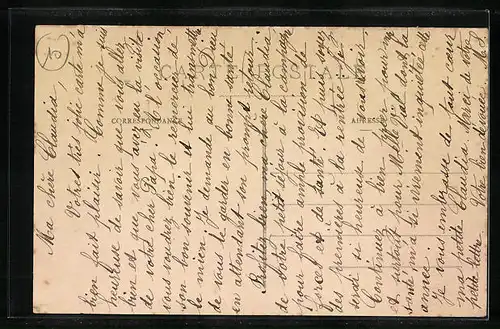 3
CARTE POSTALE
CORRESPONDANCE
ADRESSE
Ma chère Claudia,
Votre très jolie carte m'a
bien fait plaisir. Comme je suis
heureuse de savoir que vous allez
bien et que vous avez eu la visite
de votre cher Papa. À l'occasion
vous voudrez bien le remercier de
son bon souvenir et lui transmettre
le mien. Je demande au bon Dieu
de vous le garder en bonne santé
en attendant son prompt retour.
Profitez bien ma chère Claudia
de votre petit séjour à la campagne
pour faire ample provision de
forces et de santé. Et puis soyez
des premières à la rentrée. Je
serai si heureuse de vous revoir.
Continuez à bien prier pour moi
et surtout pour Melle dont la
santé m'a si vivement inquiétée cette
année.
Je vous embrasse de tout cœur
ma petite Claudia. Merci de votre
petite lettre. Votre bien dévouée M. L.